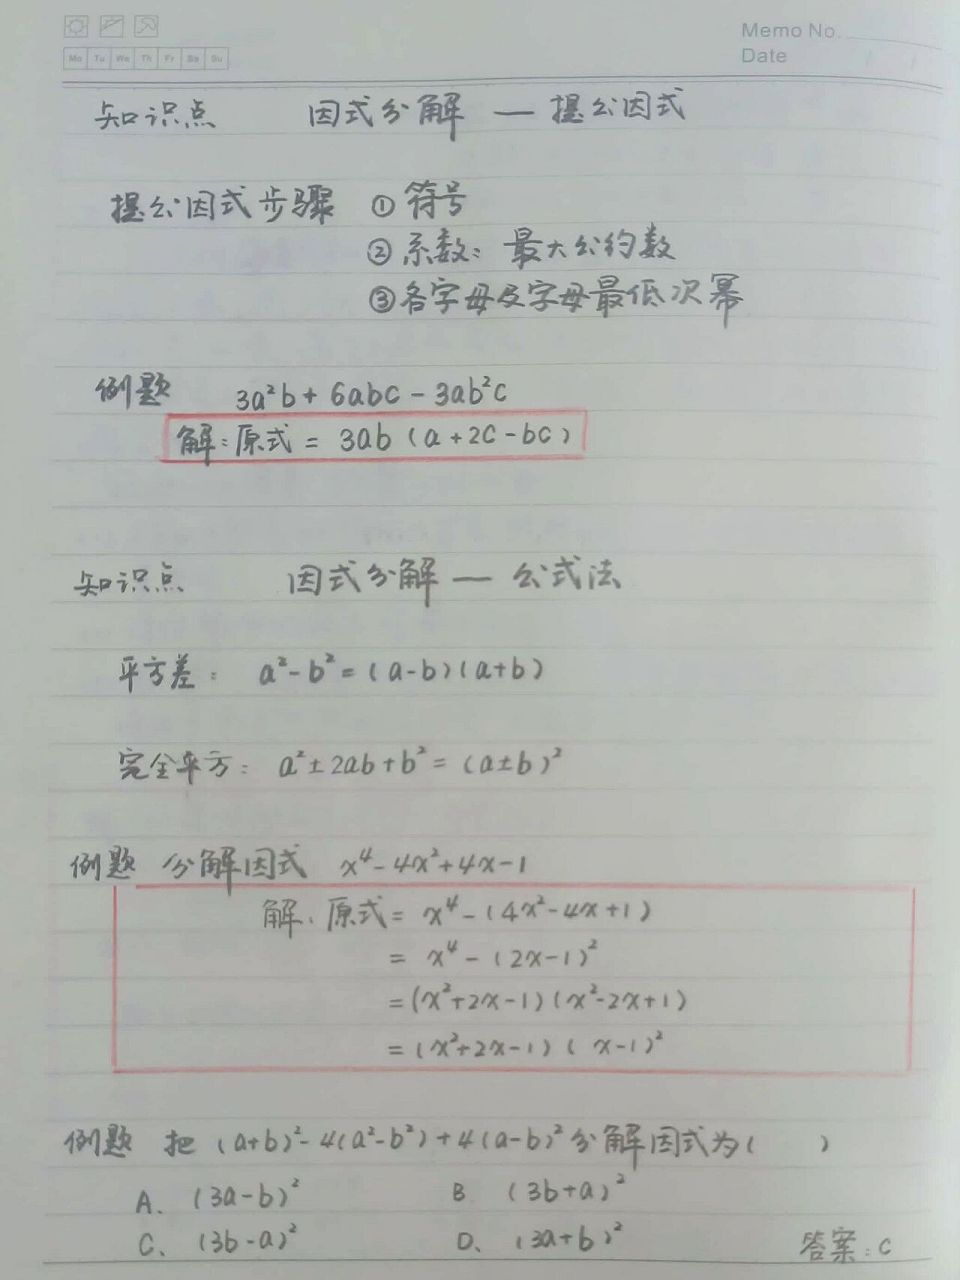 Memo No.
Mo Tu We Th Fr Sa Su
Date
知识点 因式分解 — 提公因式
提公因式步骤 ①符号
②系数：最大公约数
③各字母及字母最低次幂
例题 3a²b + 6abc - 3ab²c
解：原式 = 3ab (a + 2c - bc)
知识点 因式分解 — 公式法
平方差： a² - b² = (a-b)(a+b)
完全平方： a² ± 2ab + b² = (a±b)²
例题 分解因式 x⁴ - 4x² + 4x - 1
解：原式 = x⁴ - (4x² - 4x + 1)
= x⁴ - (2x-1)²
= (x²+2x-1)(x²-2x+1)
= (x²+2x-1)(x-1)²
例题 把 (a+b)² - 4(a²-b²) + 4(a-b)² 分解因式为( )
A、(3a-b)² B (3b+a)²
C、(3b-a)² D、(3a+b)² 答案：C